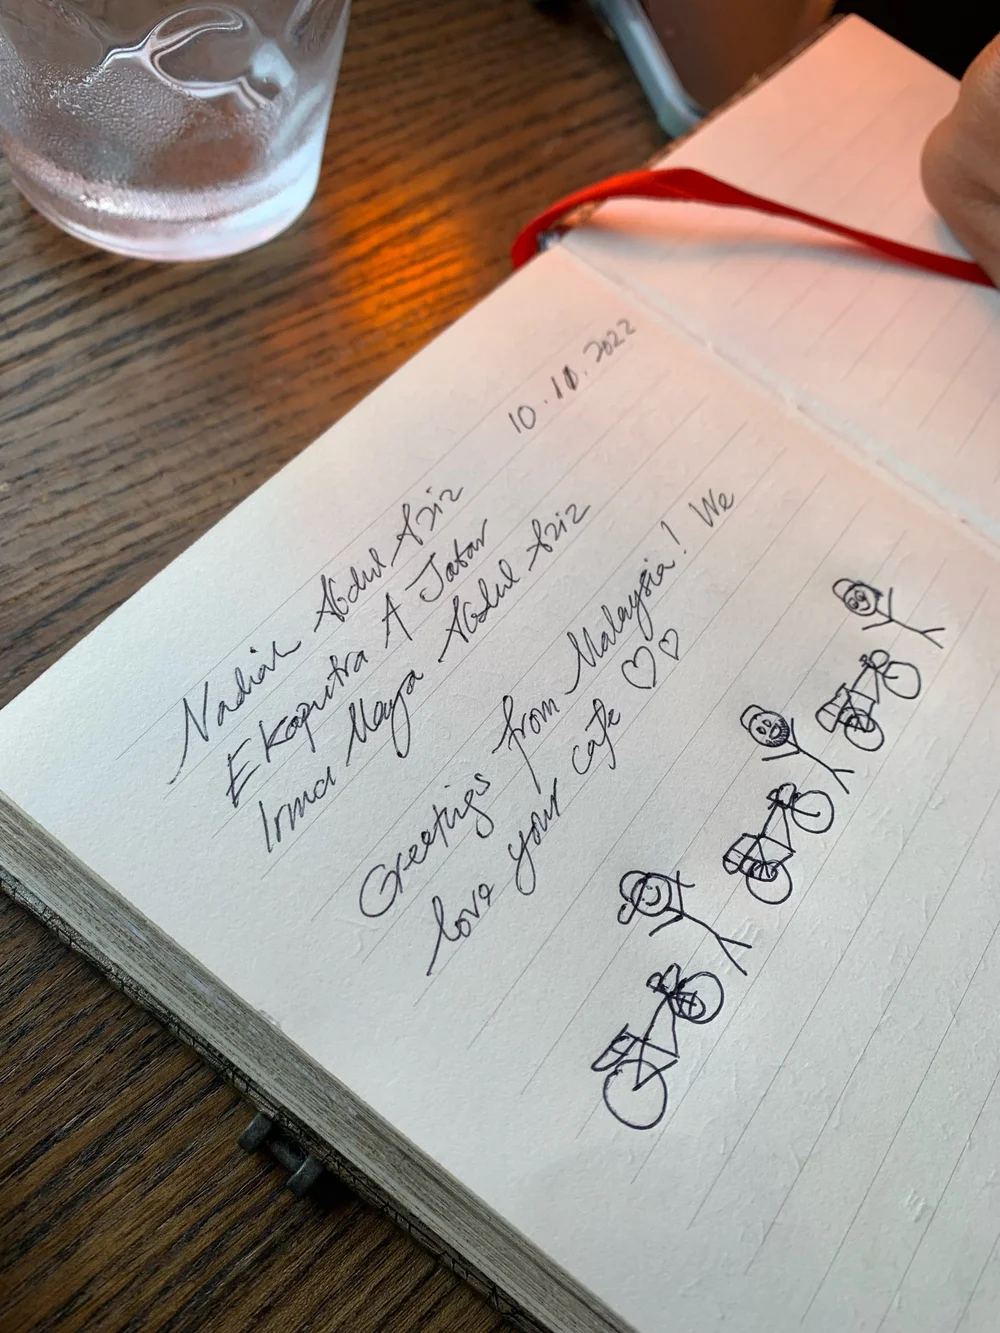 10.10.2022
Nadiah Abdul Aziz
Ekaputra A Jatar
Irma Maya Abdul Aziz
Greetings from Malaysia! We
love your cafe ♡♡